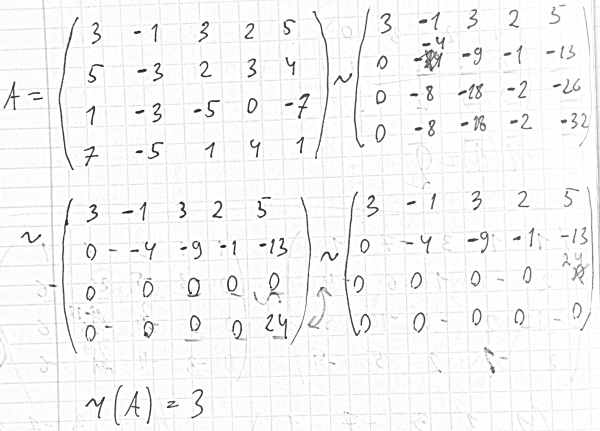 A = ( 3 -1 3 2 5 ~ ( 3 -1 3 2 5
5 -3 2 3 4 0 -4 -9 -1 -13
1 -3 -5 0 -7 0 -8 -18 -2 -26
7 -5 1 4 1 ) 0 -8 -18 -2 -32 )
~ ( 3 -1 3 2 5 ~ ( 3 -1 3 2 5
0 -4 -9 -1 -13 0 -4 -9 -1 -13
0 0 0 0 0 0 0 0 0 24
0 0 0 0 24 ) 0 0 0 0 0 )
r(A) = 3